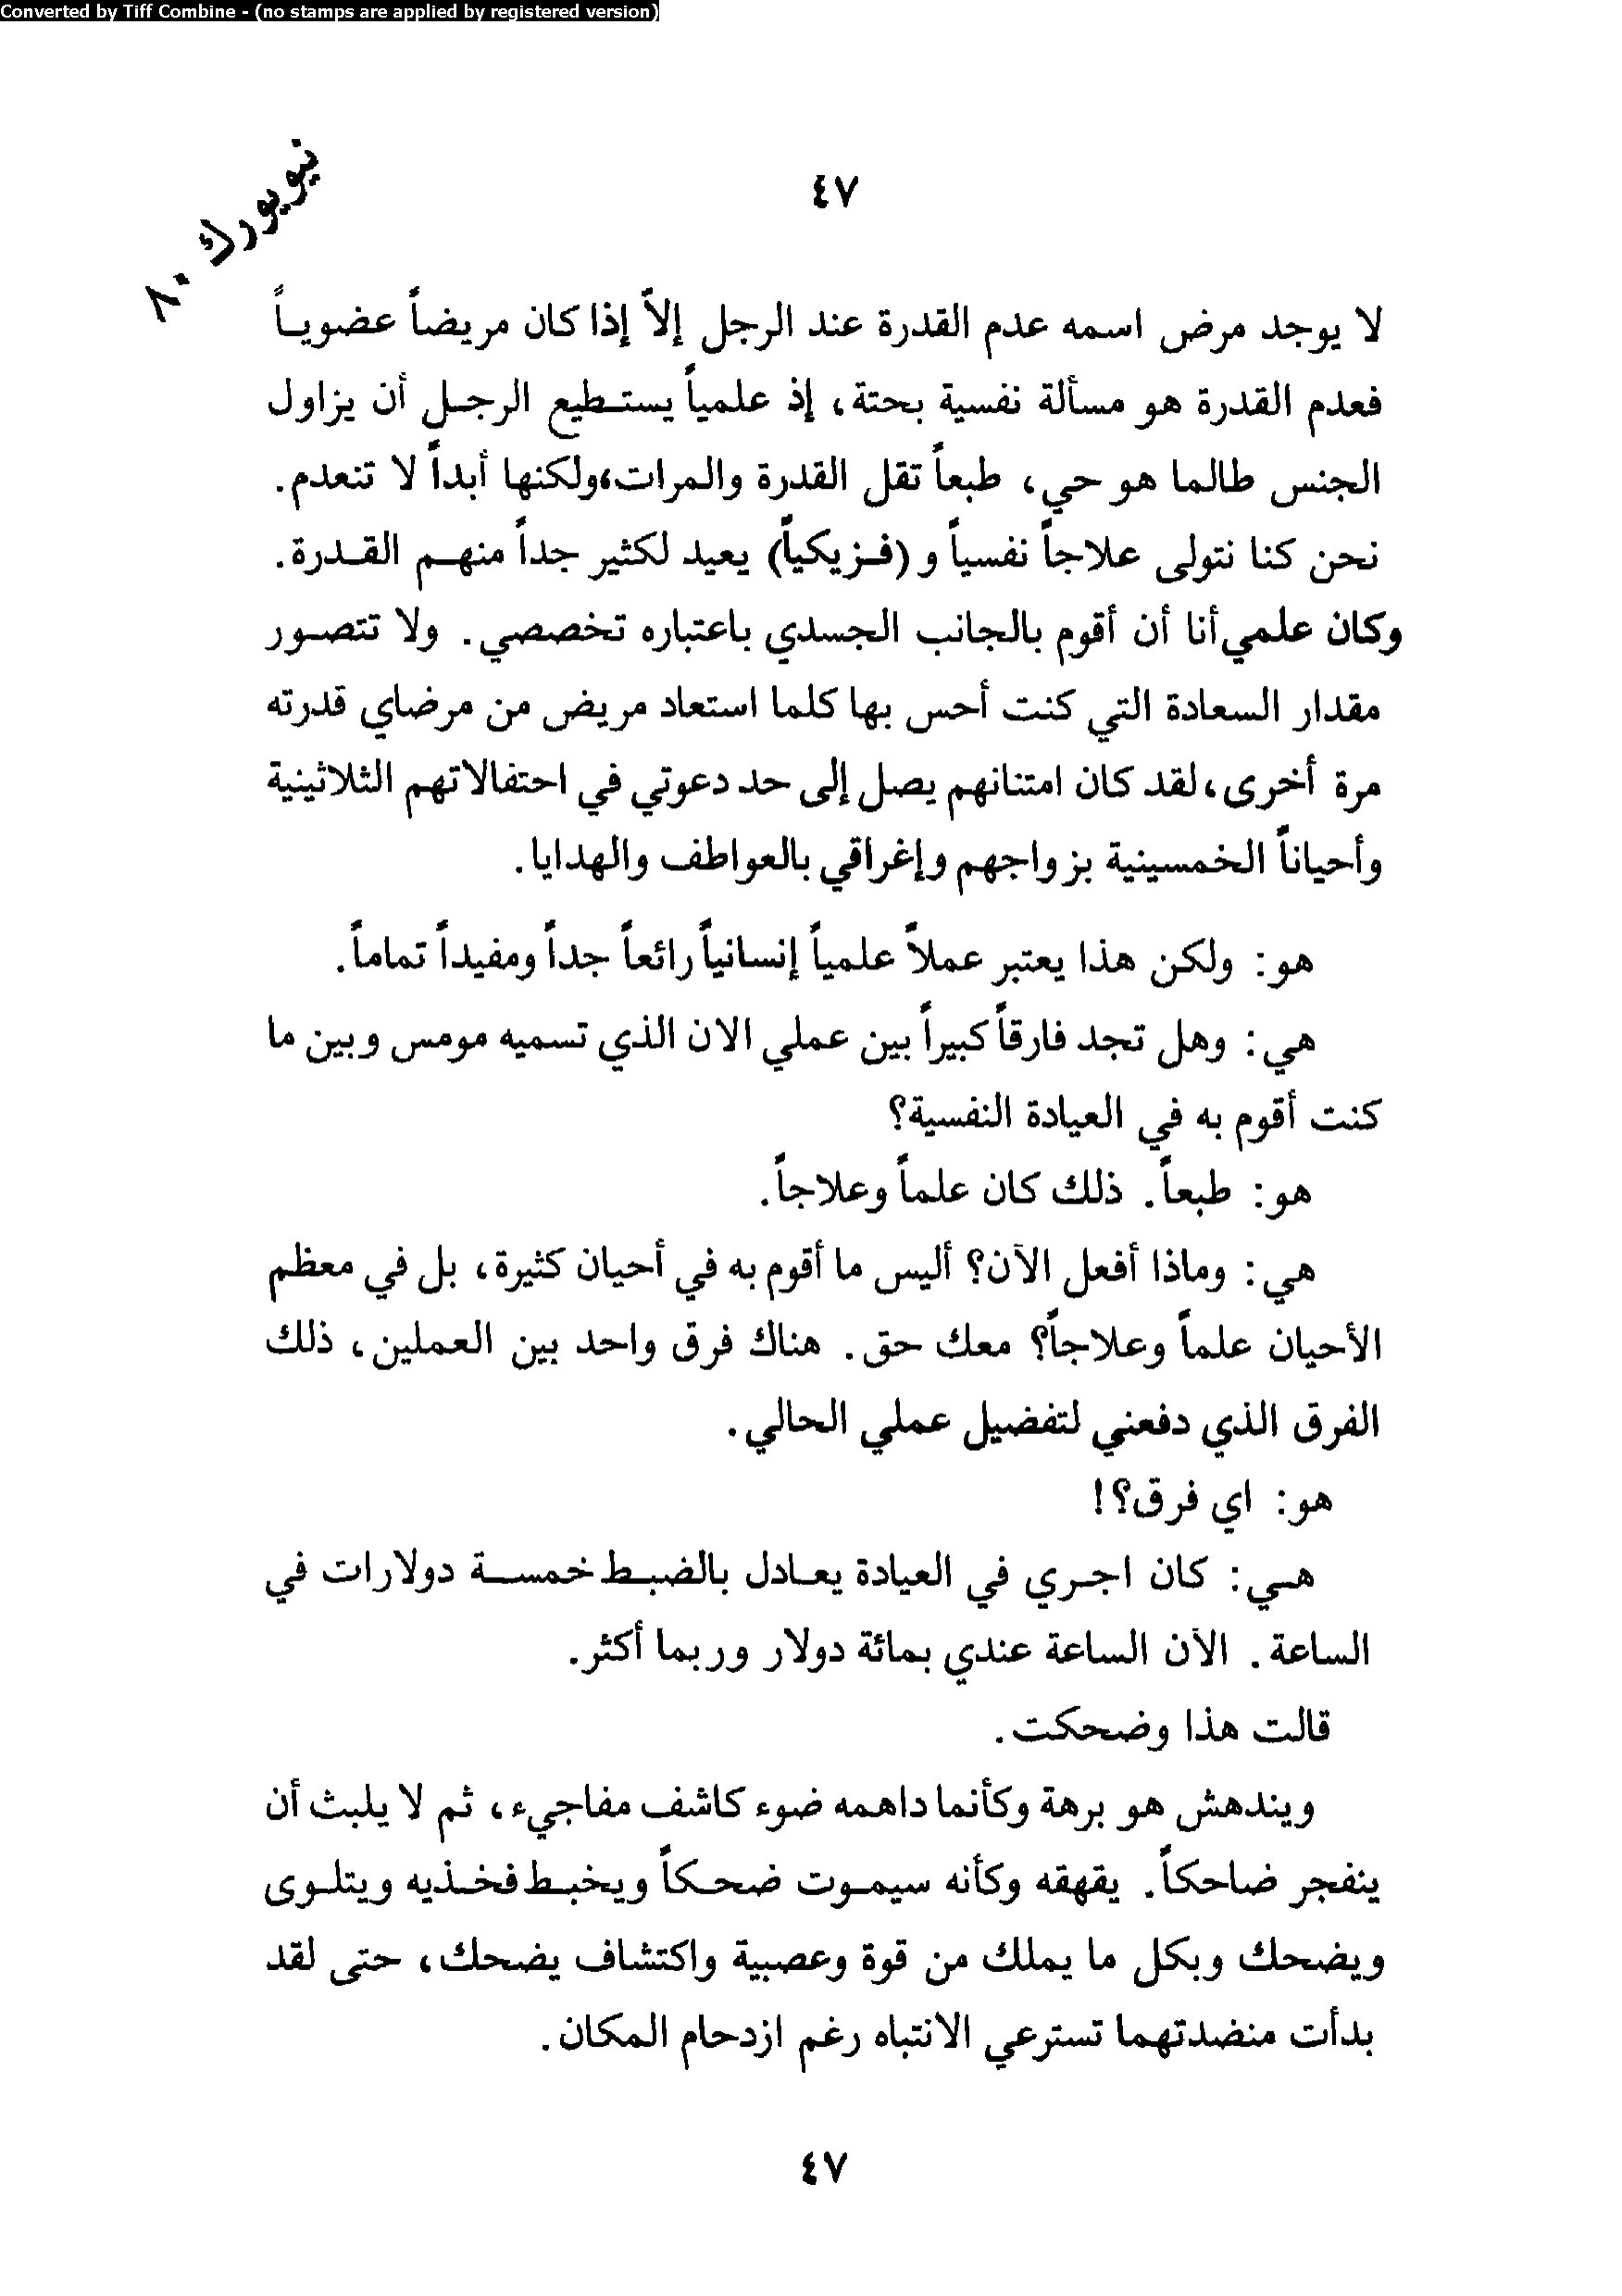 Converted by Tiff Combine - (no stamps are applied by registered version)
نيويورك ٨٠
٤٧
لا يوجد مرض اسمه عدم القدرة عند الرجل إلاّ إذا كان مريضاً عضويـاً
فعدم القدرة هو مسألة نفسية بحتة، إذ علمياً يستـطيع الرجـل أن يزاول
الجنس طالما هو حي، طبعاً تقل القدرة والمرات،ولكنها أبداً لا تنعدم.
نحن كنا نتولى علاجاً نفسياً و (فـزيكياً) يعيد لكثير جداً منهـم القـدرة.
وكان علمي أنا أن أقوم بالجانب الجسدي باعتباره تخصصي. ولا تتصـور
مقدار السعادة التي كنت أحس بها كلما استعاد مريض من مرضاي قدرته
مرة أخرى، لقد كان امتنانهم يصل إلى حد دعوتي في احتفالاتهم الثلاثينية
وأحياناً الخمسينية بزواجهم وإغراقي بالعواطف والهدايا.
هو: ولكن هذا يعتبر عملاً علمياً إنسانياً رائعاً جداً ومفيداً تماماً.
هي: وهل تجد فارقاً كبيراً بين عملي الان الذي تسميه مومس وبين ما
كنت أقوم به في العيادة النفسية؟
هو: طبعاً. ذلك كان علماً وعلاجاً.
هي: وماذا أفعل الآن؟ أليس ما أقوم به في أحيان كثيرة، بل في معظم
الأحيان علماً وعلاجاً؟ معك حق. هناك فرق واحد بين العملين، ذلك
الفرق الذي دفعني لتفضيل عملي الحالي.
هو: اي فرق؟!
هـي: كان اجـري في العيادة يعـادل بالضبـط خمسـة دولارات في
الساعة. الآن الساعة عندي بمائة دولار وربما أكثر.
قالت هذا وضحكت.
ويندهش هو برهة وكأنما داهمه ضوء كاشف مفاجيء، ثم لا يلبث أن
ينفجر ضاحكاً. يقهقه وكأنه سيمـوت ضحـكاً ويخبـط فخـذيه ويتلـوى
ويضحك وبكل ما يملك من قوة وعصبية واكتشاف يضحك، حتى لقد
بدأت منضدتهما تسترعي الانتباه رغم ازدحام المكان.
٤٧